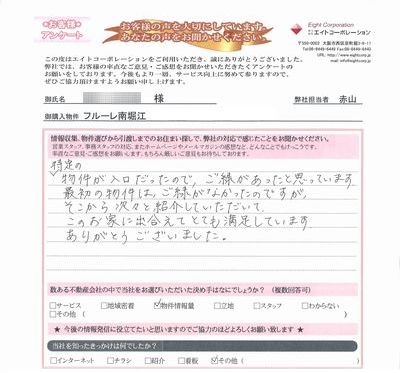 お客様の
アンケート
お客様の声を大切にしています。
あなたの声をお聞かせください
Eight Corporation
㈱エイトコーポレーション
この度はエイトコーポレーションをご利用いただき、誠にありがとうございました。
弊社では、お客様の率直なご意見・ご感想をお聞かせいただきたくアンケートの
お願いをしております。今後もより一層、サービス向上に努めて参りますので、
ぜひご協力頂けますようお願い申し上げます。
御氏名 様 弊社担当者 赤山
御購入物件 フルーレ南堀江
情報収集、物件選びから引渡しまでのお住まい探しで、弊社の対応で感じたことをお聞かせください。
営業スタッフ、事務スタッフの対応、またホームページやメールマガジンの感想など、どんなことでもけっこうです。
率直なご意見・ご感想をお願いします。もちろん厳しいご意見もお待ちしております。
特定の
物件が入口だったので、ご縁があったと思っています
最初の物件は、ご縁がなかったのですが、
そこから沢々と紹介していただいて、
このお家に出会えてとても満足しています。
ありがとうございました。
数ある不動産会社の中で当社をお選びいただいた決め手はなにでしょうか？（複数回答可）
□サービス □地域密着 ☑物件情報量 □立地 □スタッフ □わからない
□その他（ ）
★ 今後の情報発信に役立てたいと思いますのでご協力のほどよろしくお願い致します ★
当社を知ったきっかけは何でしたか？
□インターネット □チラシ □紹介 □看板 ☑その他（ ）